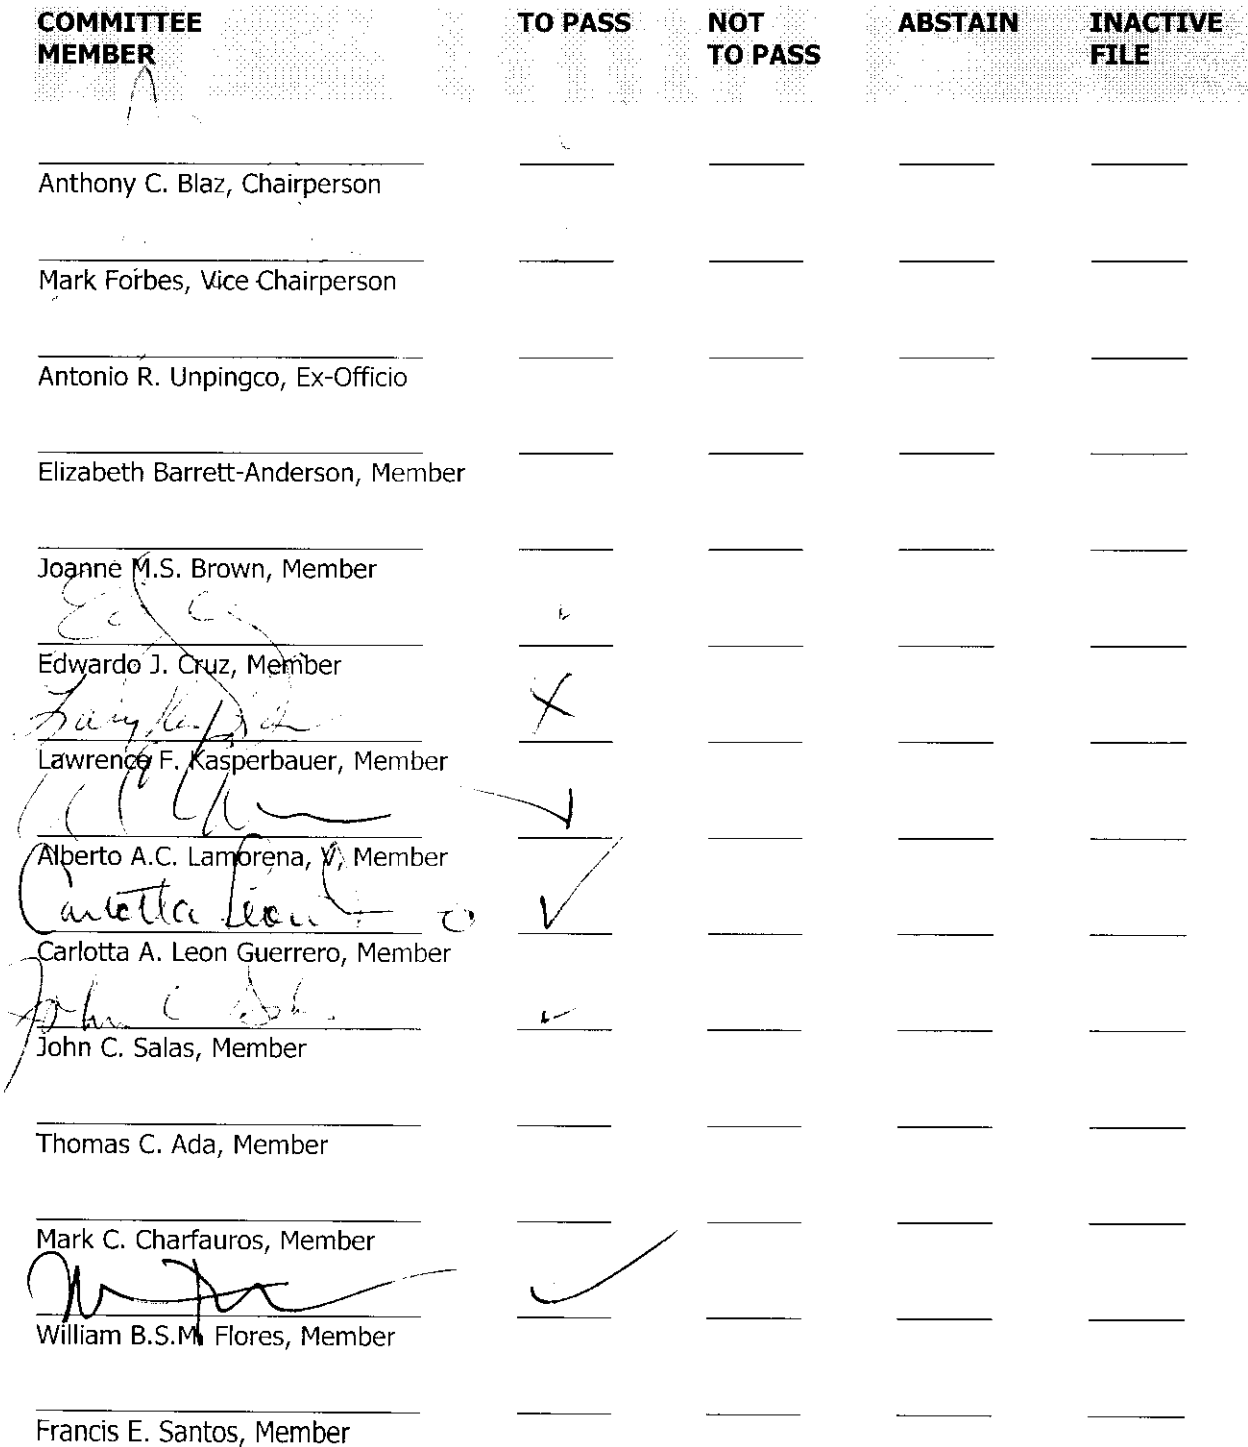 COMMITTEE MEMBER TO PASS NOT TO PASS ABSTAIN INACTIVE FILE
Anthony C. Blaz, Chairperson
Mark Forbes, Vice Chairperson
Antonio R. Unpingco, Ex-Officio
Elizabeth Barrett-Anderson, Member
Joanne M.S. Brown, Member
Edwardo J. Cruz, Member
X
Lawrence F. Kasperbauer, Member
✓
Alberto A.C. Lamorena, V, Member
Carlotta Leon ✓
Carlotta A. Leon Guerrero, Member
John C ✓
John C. Salas, Member
Thomas C. Ada, Member
Mark C. Charfauros, Member
✓
William B.S.M. Flores, Member
Francis E. Santos, Member